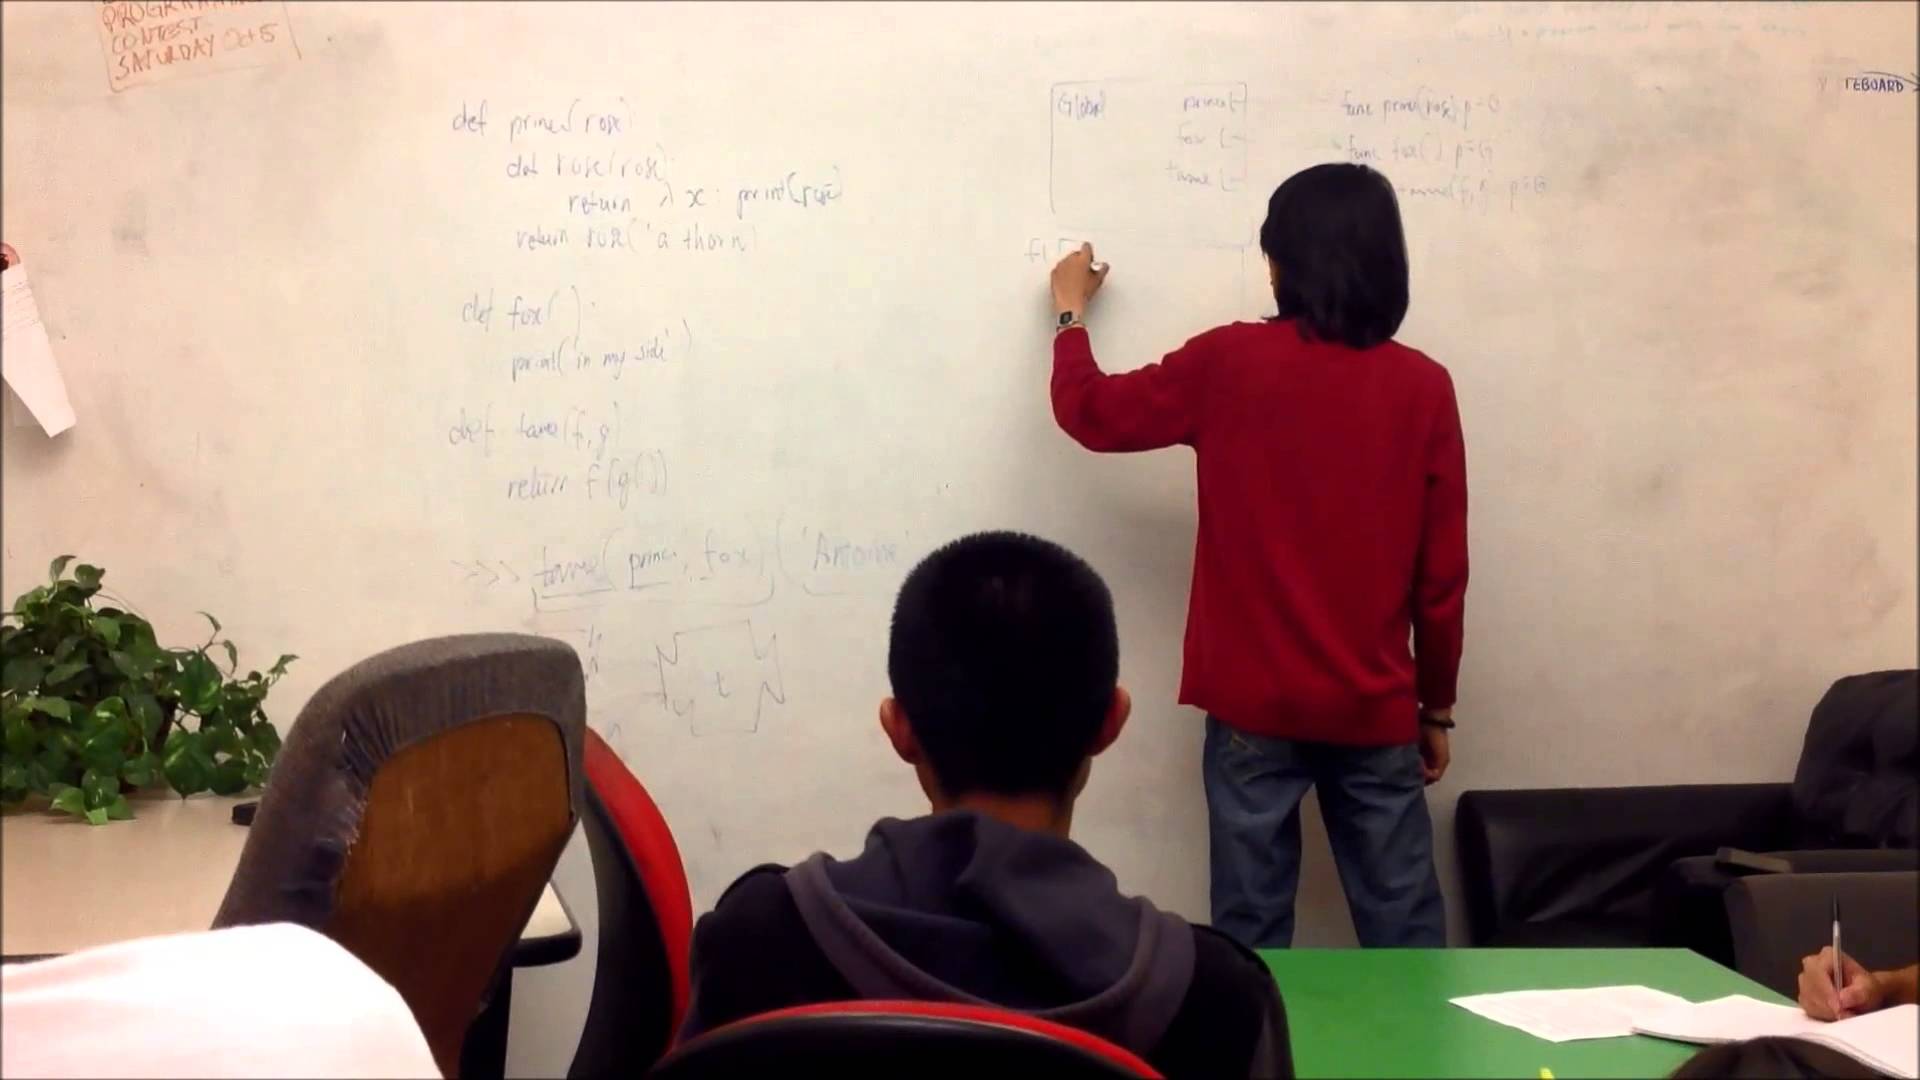 PROGRAMMING
CONTEST
SATURDAY Oct 5
def prince(rose):
def rose(rose):
return λ x: print(rose)
return rose('a thorn')
def fox():
print('in my side')
def tame(f,g)
return f(g())
>>> tame(prince, fox)('Antoine'
t
Global prince
fox
tame
func prince(rose) p=G
func fox() p=G
tame(f,g) p=G
f1
TEBOARD